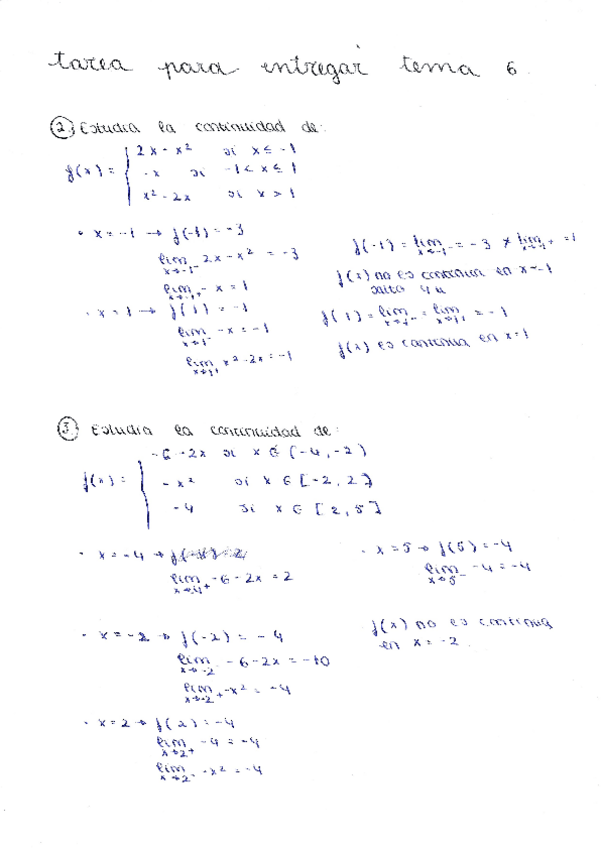 tarea para entregar tema 6
② Estudia la continuidad de:
f(x) = { 2x - x² si x ≤ -1
-x si -1 < x ≤ 1
x² - 2x si x > 1
• x = -1 → f(-1) = -3
lim x→-1⁻ 2x - x² = -3
lim x→-1⁺ -x = 1
f(-1) = lim x→-1⁻ = -3 ≠ lim x→-1⁺ = 1
f(x) no es continua en x = -1
salto 4 u
• x = 1 → f(1) = -1
lim x→1⁻ -x = -1
lim x→1⁺ x² - 2x = -1
f(1) = lim x→1⁻ = lim x→1⁺ = -1
f(x) es continua en x = 1
③ Estudia la continuidad de:
f(x) = { -6 - 2x si x ∈ (-4, -2)
-x² si x ∈ [-2, 2]
-4 si x ∈ [2, 5]
• x = -4 →
lim x→-4⁺ -6 - 2x = 2
• x = -2 → f(-2) = -4
lim x→-2⁻ -6 - 2x = -10
lim x→-2⁺ -x² = -4
• x = 2 → f(2) = -4
lim x→2⁺ -4 = -4
lim x→2⁻ -x² = -4
• x = 5 → f(5) = -4
lim x→5⁻ -4 = -4
f(x) no es continua
en x = -2